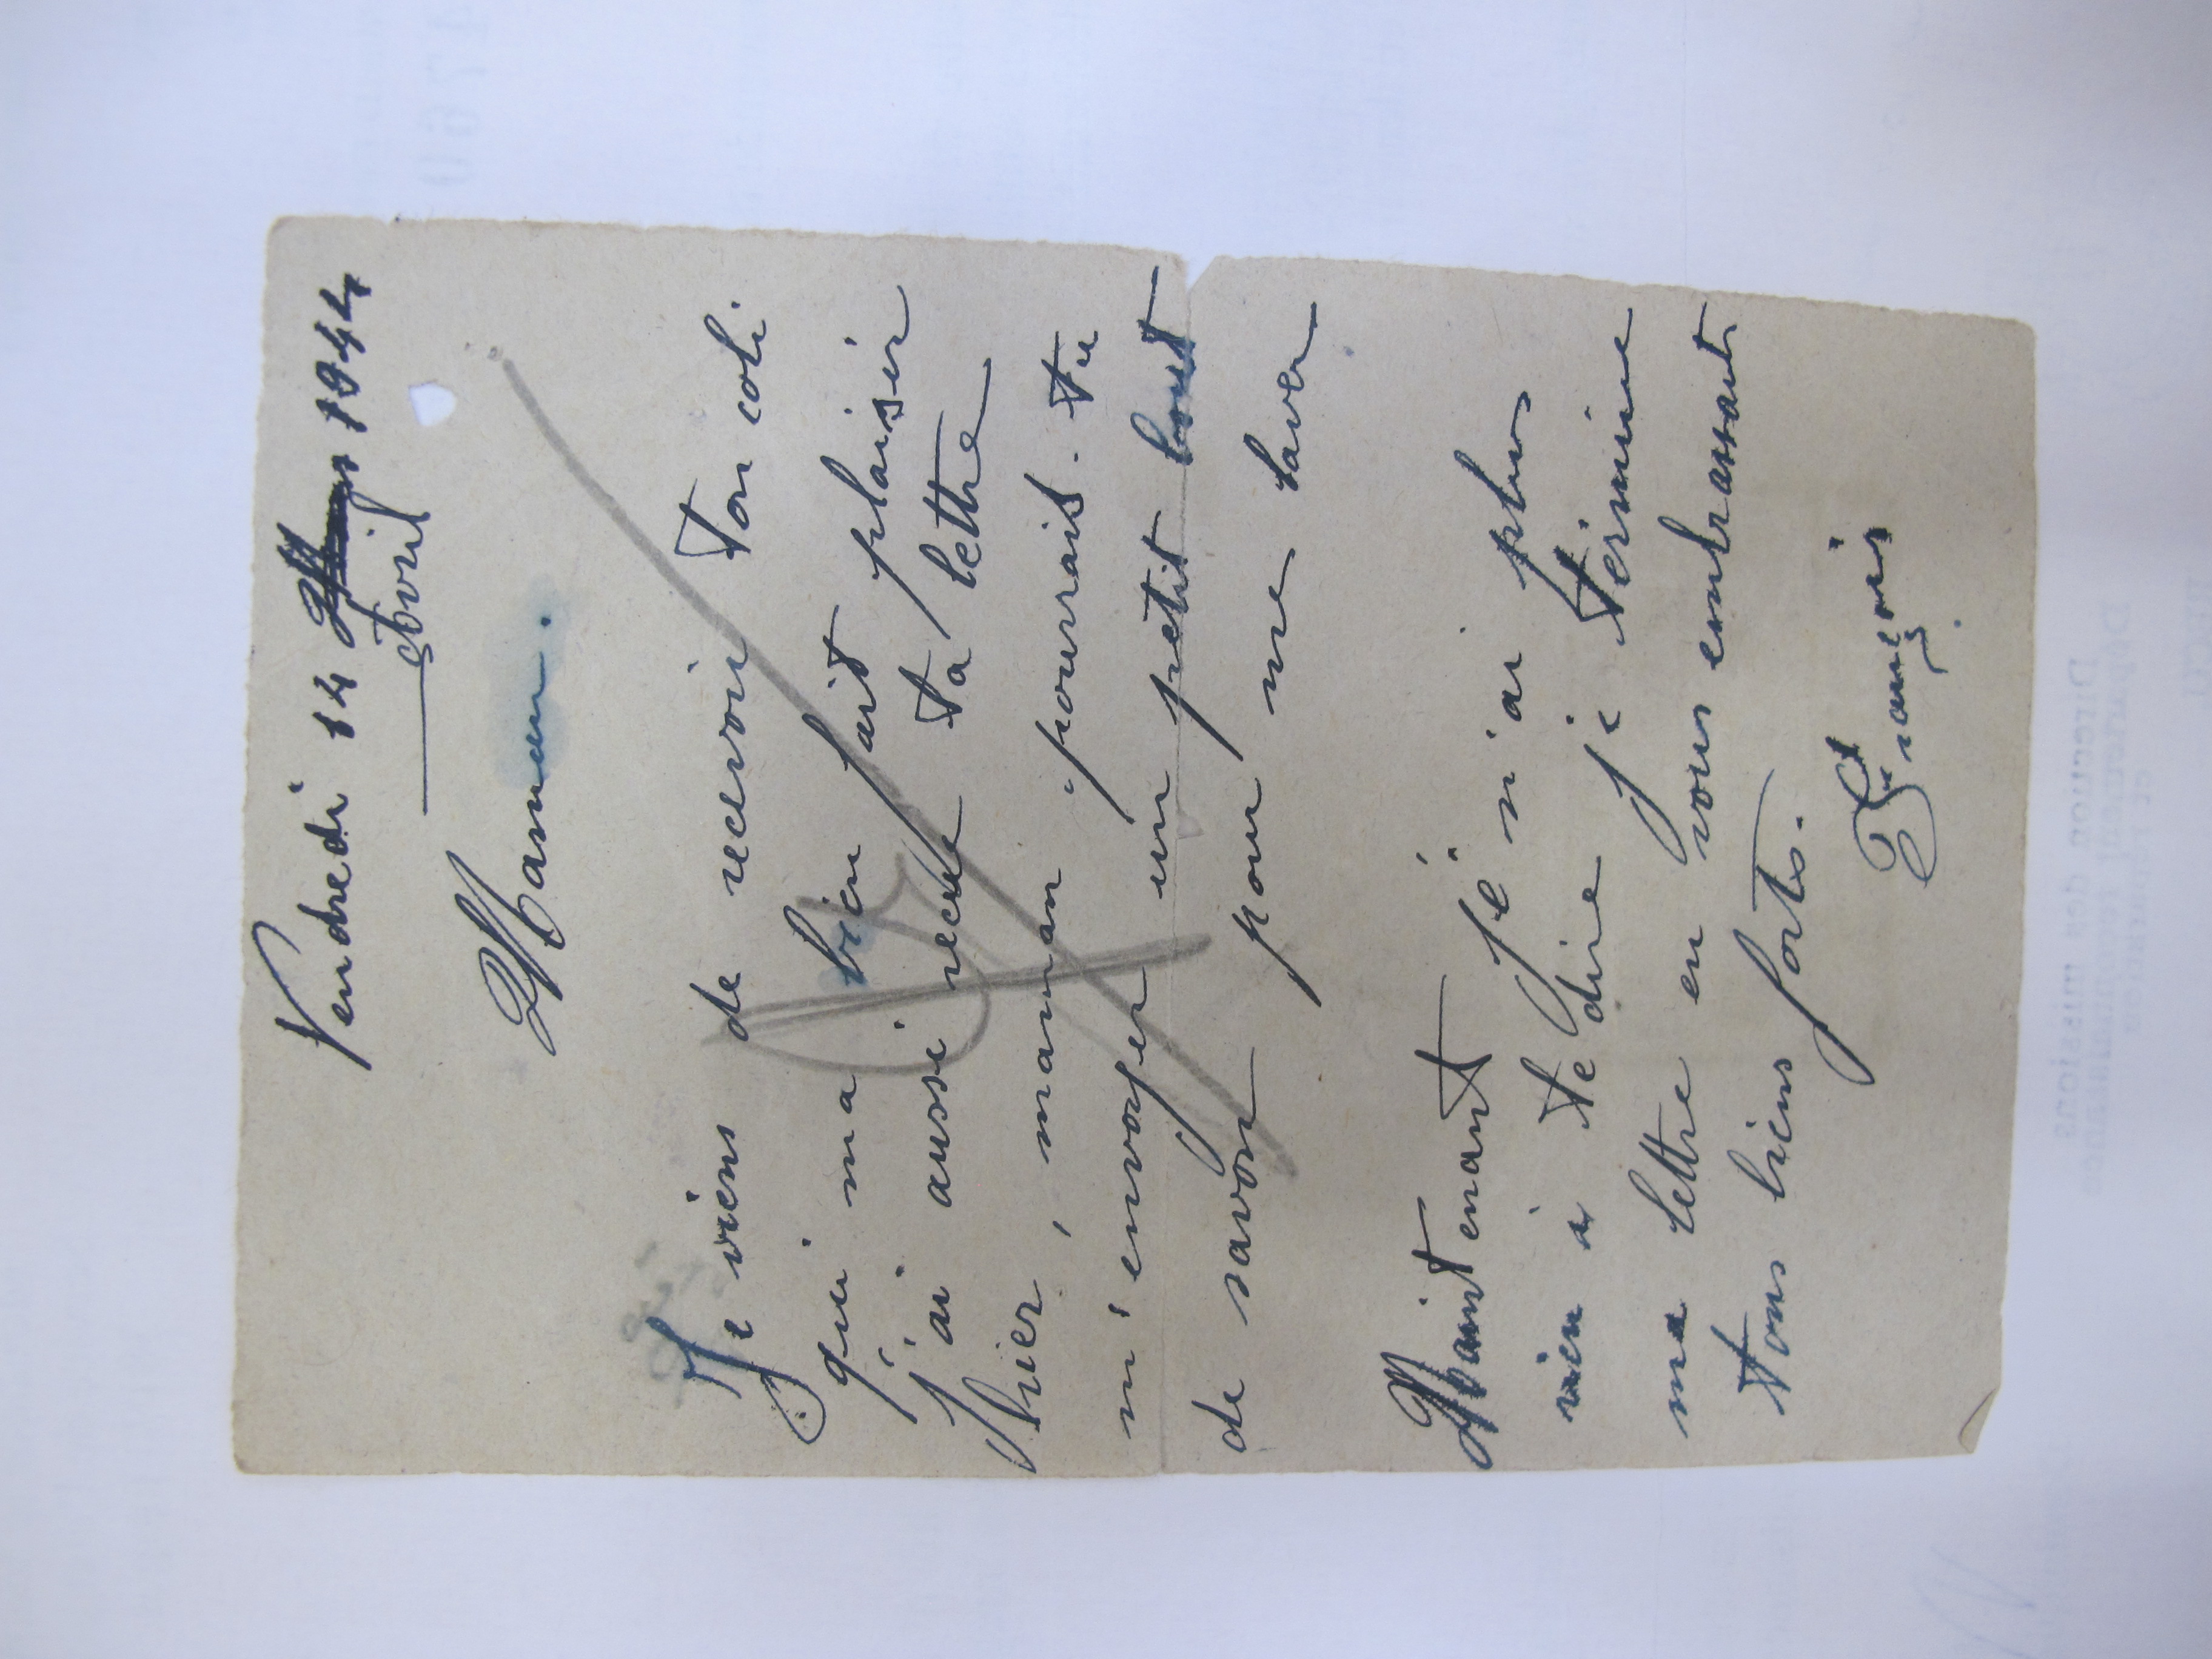 Vendredi 14 1944
avril
Maman.
Je viens de recevoir ton coli
qui ma bien fait plaisir
j'ai aussi recue ta lettre
hier, maman pourrais-tu
m'envoyer un petit bout
de savon pour me laver
Maintenant je n'ai plus
rien à te dire je termine
ma lettre en vous embrassant
tous biens forts.
François
Direction des missions